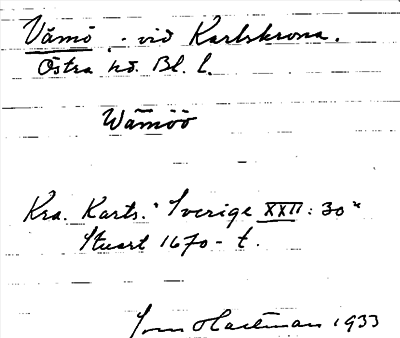 Vämö - vid Karlskrona.
Östra hd. Bl. l.
Wämöö
Kra. Karts. "Sverige XXII: 30"
Stuart 1670-t.
Hartman 1933